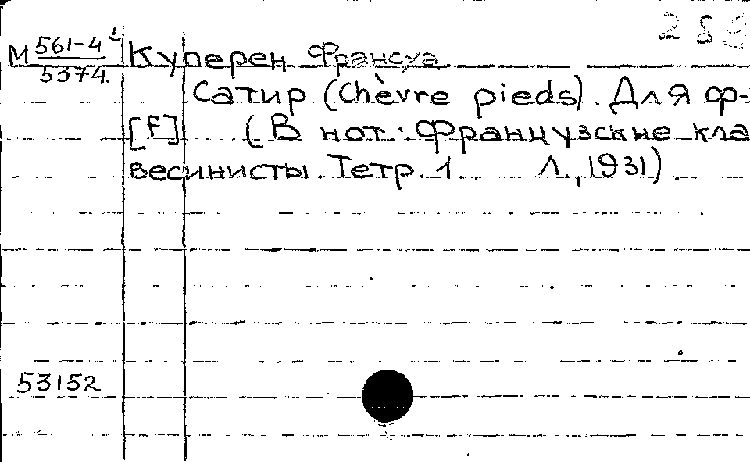 М 561-4¹
5374.
Куперен Франсуа
Сатир (Chèvre pieds). Для ф-
[F] (В нот.: Французские кла
весинисты. Тетр. 1 Л., 1931)
53152